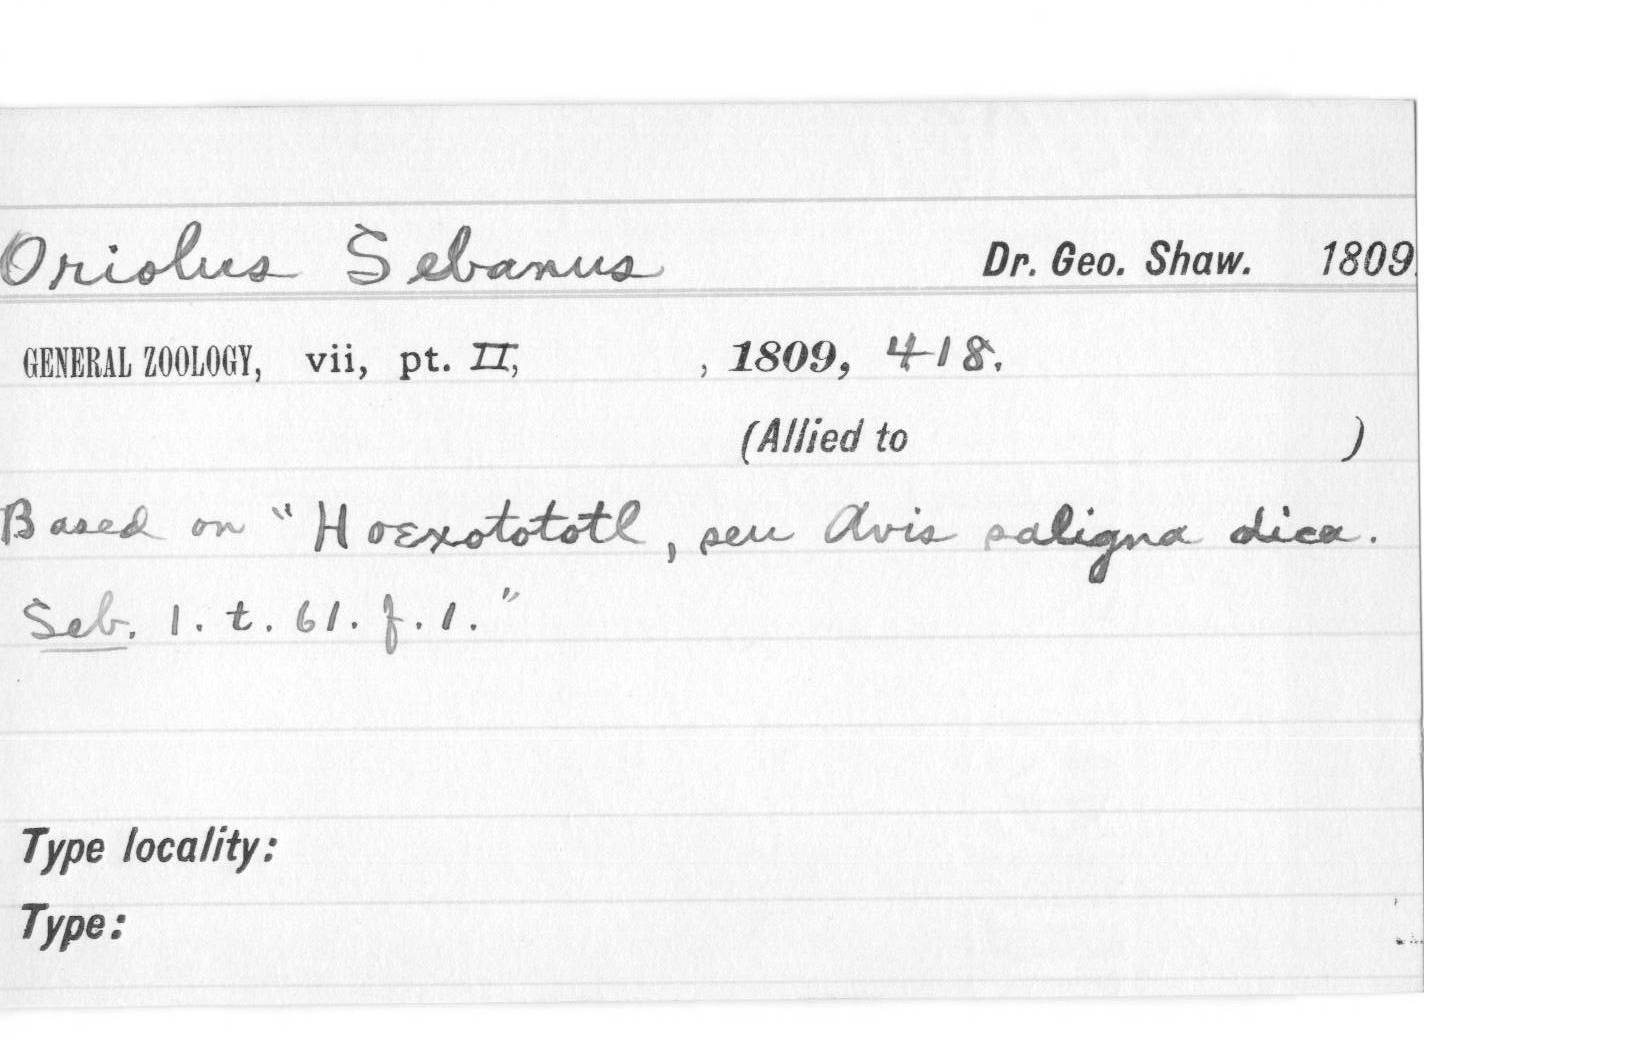 Oriolus Sebanus Dr. Geo. Shaw. 1809.
GENERAL ZOOLOGY, vii, pt. II, , 1809, 418.
(Allied to )
Based on "Hoexototototl, seu Avis saligna dica.
Seb. 1. t. 61. f. 1."
Type locality:
Type: